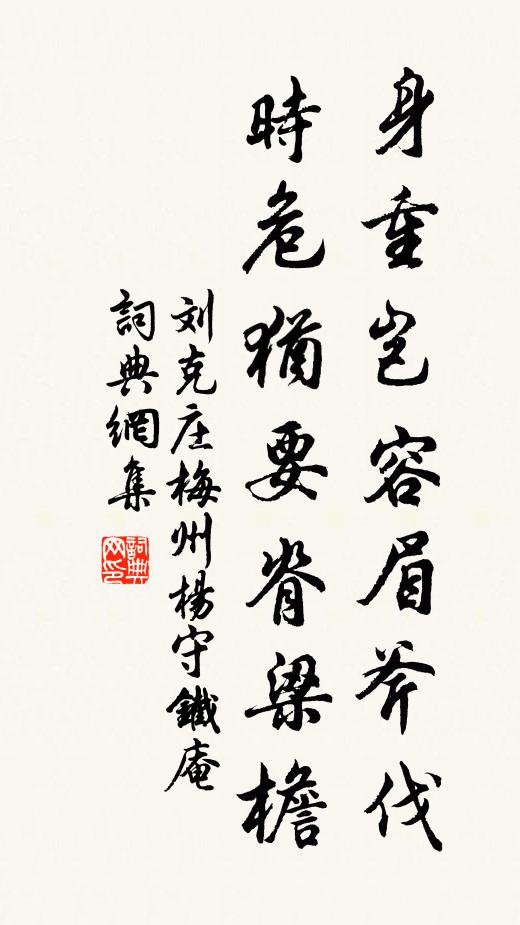 身重岂容眉斧伐
時危猶要脊梁檐
刘克庄梅州楊守鐵庵
詞典網集
詞典网印